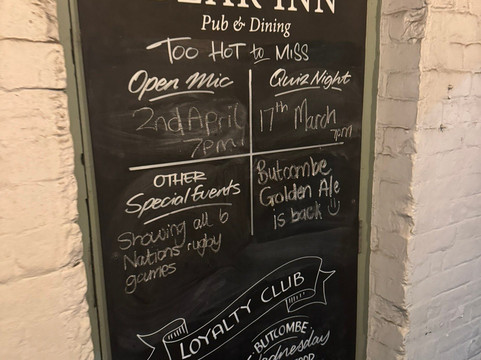 INN
Pub & Dining
Too HoT to MISS
Open Mic
2nd April
7pm
Quiz Night
17th March
7pm
OTHER
Special Events
Showing all 6
Nations rugby
games
Butcombe
Golden Ale
is back
LOYALTY CLUB
BUTCOMBE
Wednesday